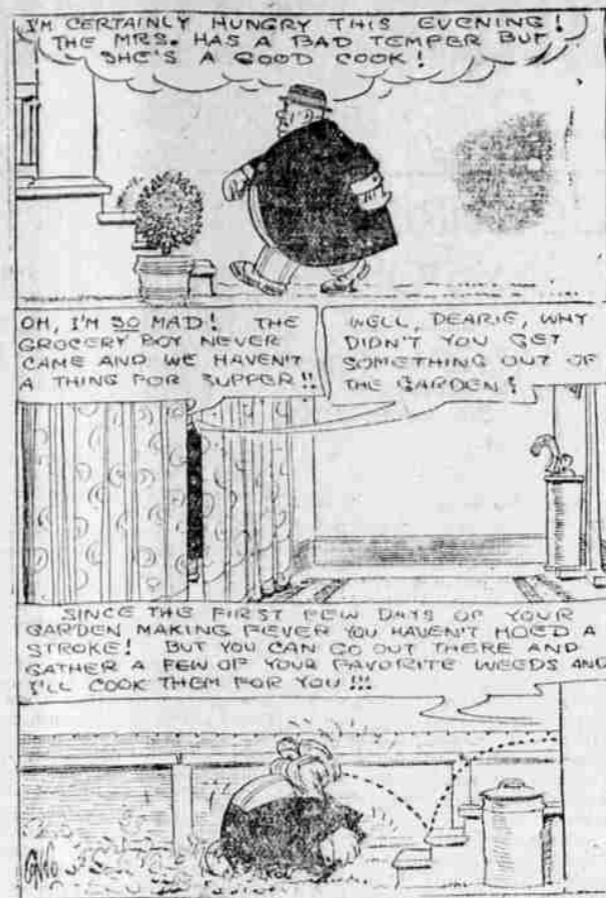 I'M CERTAINLY HUNGRY THIS EVENING!
THE MRS. HAS A BAD TEMPER BUT
SHE'S A GOOD COOK!
OH, I'M SO MAD! THE
GROCERY BOY NEVER
CAME AND WE HAVEN'T
A THING FOR SUPPER!!
WELL, DEARIE, WHY
DIDN'T YOU GET
SOMETHING OUT OF
THE GARDEN?
SINCE THE FIRST FEW DAYS OF YOUR
GARDEN MAKING FEVER YOU HAVEN'T HOED A
STROKE! BUT YOU CAN GO OUT THERE AND
GATHER A FEW OF YOUR FAVORITE WEEDS AND
I'LL COOK THEM FOR YOU!!!